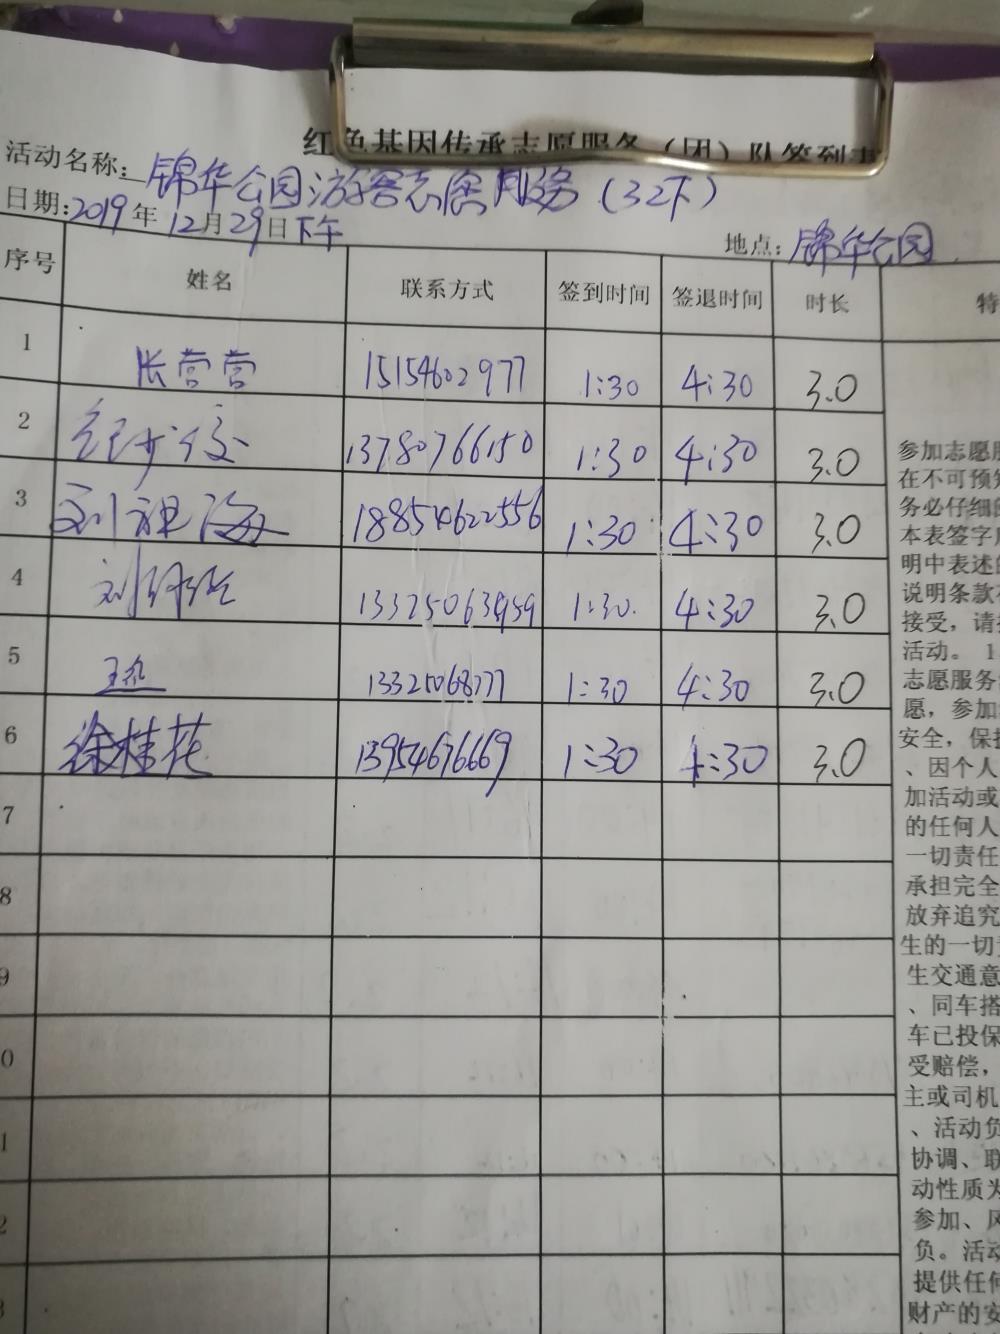 红色基因传承志愿服务(团)队签到表
活动名称:锦华公园游客志愿服务(32下)
日期:2019年12月29日下午
地点:锦华公园
序号 姓名 联系方式 签到时间 签退时间 时长 特
1 张营营 15154602977 1:30 4:30 3.0
2 13780766150 1:30 4:30 3.0
3 刘祖海 18854622556 1:30 4:30 3.0
4 刘 13325063959 1:30 4:30 3.0
5 1:30 4:30 3.0
6 徐桂花 13954676669 1:30 4:30 3.0
7
8
9
0
1
2
3
参加志愿服
在不可预知
务必仔细的
本表签字后
明中表述的
说明条款有
接受，请拒
活动。 1
志愿服务
愿，参加
安全，保持
、因个人
加活动或
的任何人
一切责任
承担完全
放弃追究
生的一切责
生交通意
、同车搭
车已投保
受赔偿，
主或司机
、活动负
协调、联
动性质为
参加、风
负。活动
提供任何
财产的安